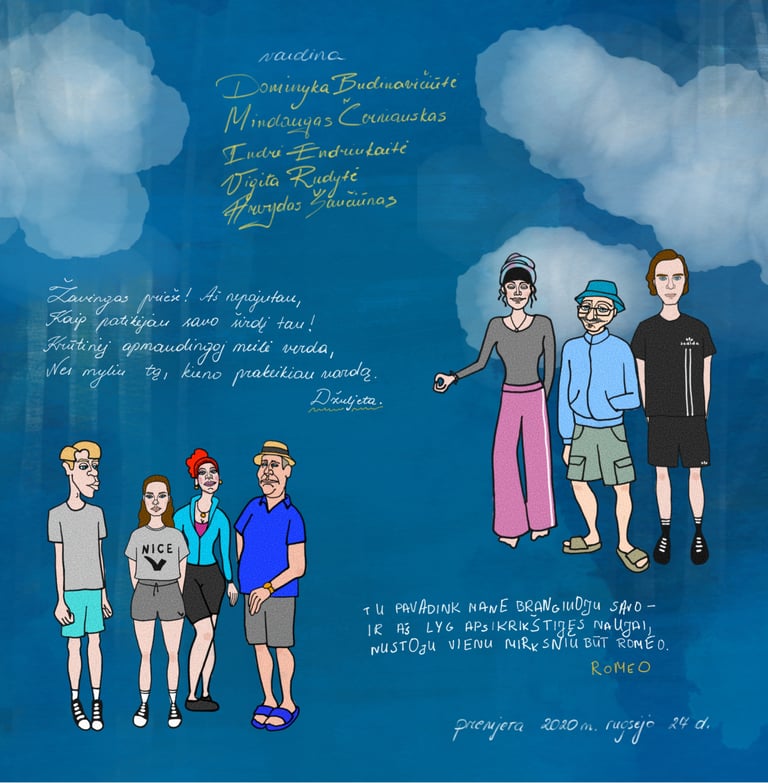 vaidina
Dominyka Budinavičiūtė
Mindaugas Černiauskas
Indrė Endriukaitė
Vigita Rudytė
Arvydas Šaučiūnas
Žavingas prieše! Aš nepajutau,
Kaip patikėjau savo širdį tau!
Krūtinėj apmaudingoj meilė verda,
Nes myliu tą, kieno prakeikiau vardą.
Džuljeta.
NICE
TU PAVADINK MANE BRANGIUOJU SAVO –
IR AŠ LYG APSIKRIKŠTIJĘS NAUJAI,
NUSTOJU VIENU MIRKSNIU BŪT ROMEO.
ROMEO
premjera 2020 m. rugsėjo 24 d.